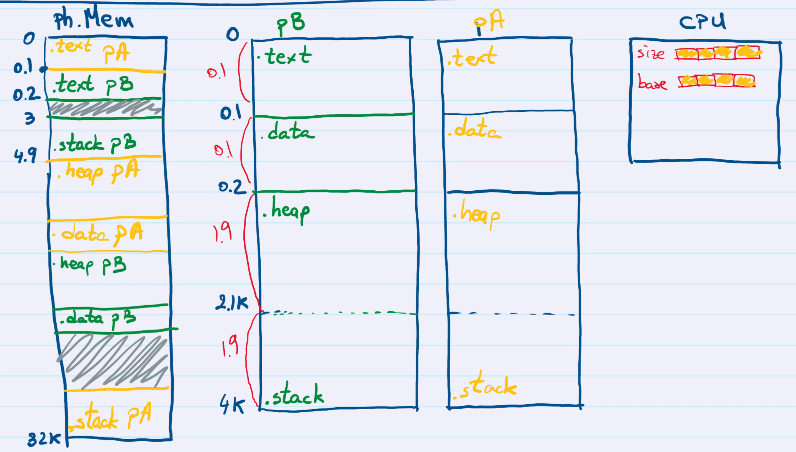 ph.Mem
0
.text pA
0.1
.text pB
0.2
3
.stack pB
4.9
.heap pA
.data pA
.heap pB
.data pB
.stack pA
32K
pB
0
.text
0.1
0.1
.data
0.1
0.2
.heap
1.9
2.1K
1.9
4K
.stack
pA
.text
.data
.heap
.stack
CPU
size
base